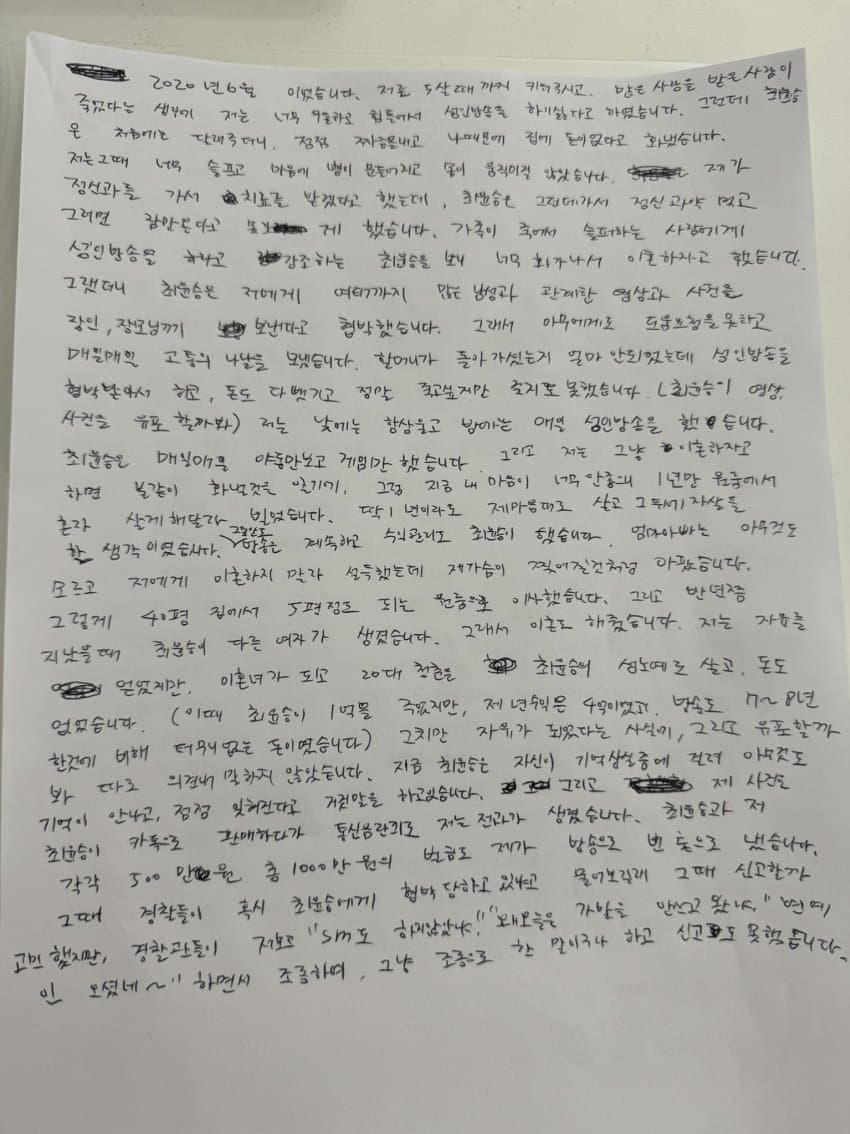 2020년 6월 이었습니다. 저를 5살때 까지 키워주시고. 많은 사랑을 받은 사람이
죽었다는 생각에 저는 너무 우울하고 힘들어서 성인방송을 하기싫다고 하였습니다. 그런데 최윤승
은 처음에는 달래주더니, 점점 짜증을내고 나때문에 집에 돈이없다고 화냈습니다.
저는 그때 너무 슬프고 마음에 병이 문들어지고 몸이 움직이질 않았습니다. 제가
정신과를 가서 치료를 받겠다고 했는데, 최윤승은 그런데가서 정신과약 먹고
그러면 장안된다고 못 게 했습니다. 가족이 죽어서 슬퍼하는 사람에게
성인방송을 하라고 강조하는 최윤승을 보니 너무 화가나서 이혼하자고 했습니다.
그랬더니 최윤승은 저에게 여태까지 많은 남성과 관계한 영상과 사진을
장인, 장모님께 보낸다고 협박했습니다. 그래서 아무에게로 도움요청을 못하고
매일매일 고통의 나날을 보냈습니다. 할머니가 돌아가셨는지 얼마 안되었는데 성인방송을
협박받아서 하고, 돈도 다뺏기고 정말 죽고싶지만 죽지도 못했습니다. (최윤승이 영상,
사진을 유포할까봐) 저는 낮에는 항상울고 밤에는 매일 성인방송을 했습니다.
최윤승은 매일매일 야동만보고 게임만 했습니다. 그리고 저는 그냥 이혼하자고
하면 불같이 화낼것을 알기에, 그럼 지금 내 마음이 너무 안좋으니 1년만 원룸에서
혼자 살게해달라 빌었습니다. 딱 1년이라도 제마음대로 살고 그뒤에 자살을
할 생각이였습니다. 그동안도 방송은 계속하고 수익관리도 최윤승이 했습니다. 엄마아빠는 아무것도
모르고 저에게 이혼하지 말라 설득했는데 제가슴이 찢어질것처럼 아팠습니다.
그렇게 40평 집에서 5평정도 되는 원룸으로 이사했습니다. 그리고 반년쯤
지났을때 최윤승이 다른 여자가 생겼습니다. 그래서 이혼도 해줬습니다. 저는 자유를
얻었지만, 이혼녀가 되고 20대 청춘을 최윤승의 성노예로 살고, 돈도
없었습니다. (이때 최윤승이 1억을 주었지만, 제 년수익은 4억이었고, 방송도 7~8년
한것에 비해 터무니없는 돈이였습니다) 그치만 자유가 되었다는 사실에, 그리고 유포할까
봐 따로 의견내 말하지 않았습니다. 지금 최윤승은 자신이 기억상실증에 걸려 아무것도
기억이 안나고, 점점 잊혀진다고 거짓말을 하고있습니다. 그리고 제 사진을
최윤승이 카톡으로 판매하다가 통신음란죄로 저는 전과가 생겼습니다. 최윤승과 저
각각 500만원 총 1000만원의 벌금도 제가 방송으로 번 돈으로 냈습니다.
그때 경찰들이 혹시 최윤승에게 협박 당하고 있냐고 물어보길래 그때 신고할까
고민했지만, 경찰관들이 저보고 "sm도 하지않았냐" "왜오늘은 가발을 안쓰고 왔냐" "연예
인 오셨네~" 하면서 조롱하며, 그냥 조롱으로 한 말이구나 하고 신고도 못했습니다.